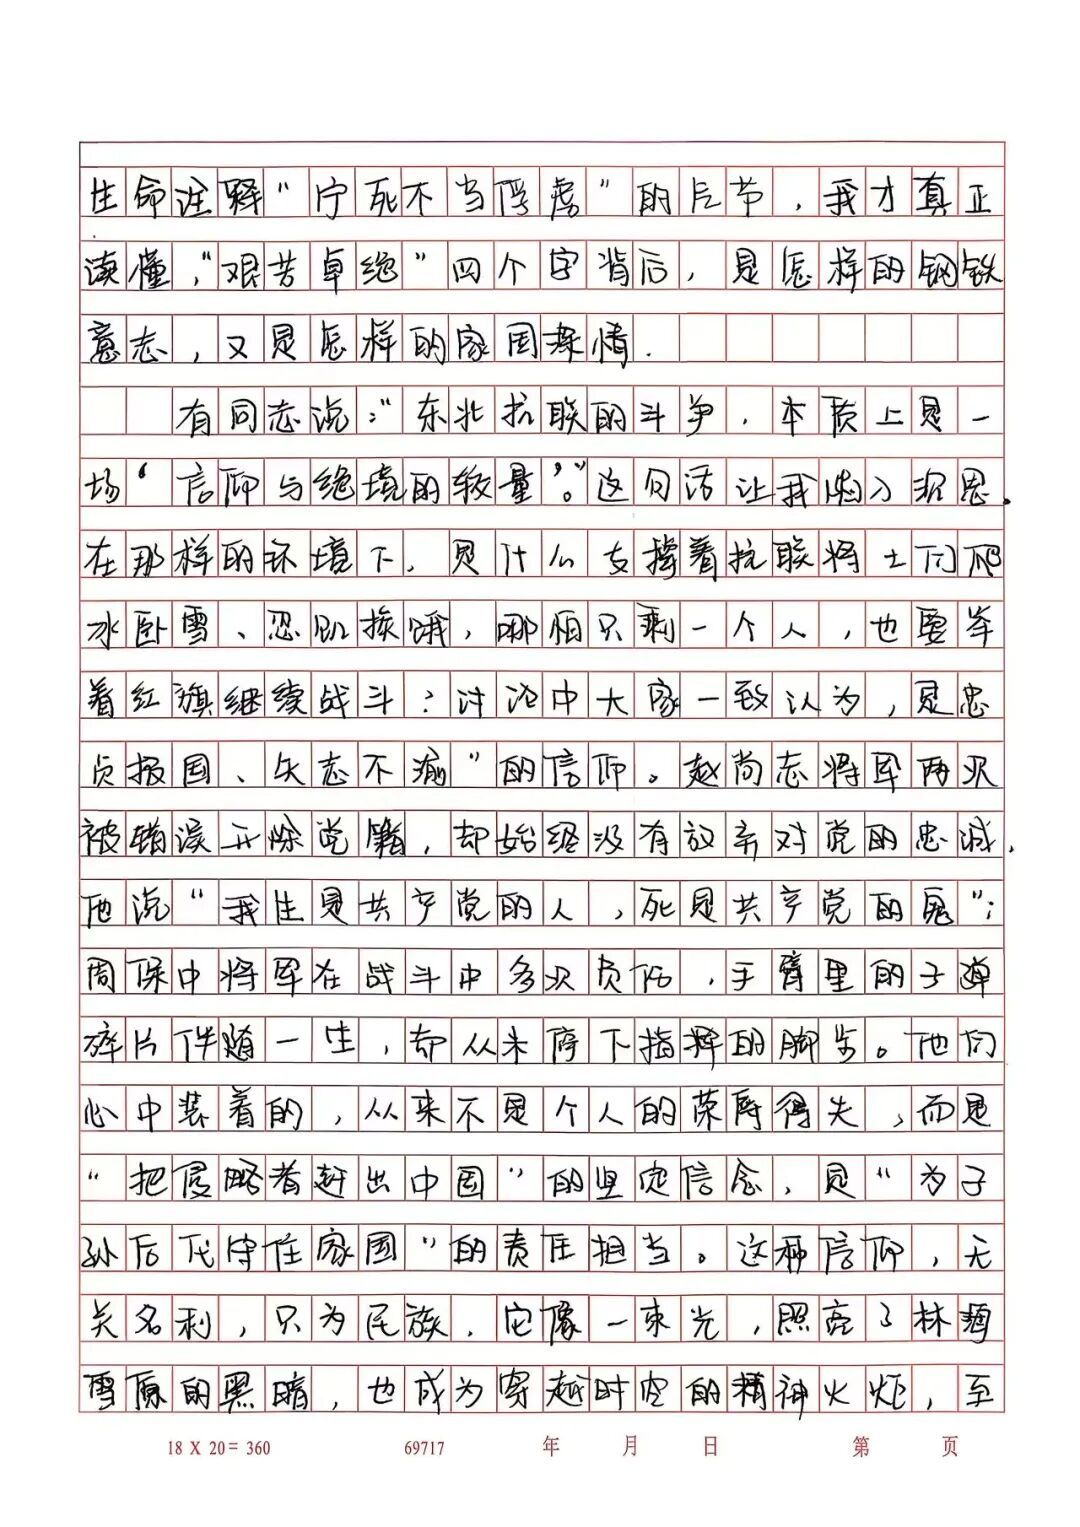 生命注释“宁死不当俘虏”的片节，我才真正
读懂，“艰苦卓绝”四个字背后，是怎样的钢铁
意志，又是怎样的家国深情.
有同志说：“东北抗联的斗争，本质上是一
场‘信仰与绝境的较量’。”这句话让我陷入沉思.
在那样的环境下，是什么支撑着抗联将士们爬
冰卧雪、忍饥挨饿，哪怕只剩一个人，也要举
着红旗继续战斗？讨论中大家一致认为，是忠
贞报国、矢志不渝”的信仰。赵尚志将军两次
被错误开除党籍，却始终没有放弃对党的忠诚，
他说“我生是共产党的人，死是共产党的鬼”；
周保中将军在战斗中多次负伤，手臂里的子弹
碎片伴随一生，却从未停下指挥的脚步。他们
心中装着的，从来不是个人的荣辱得失，而是
“把侵略者赶出中国”的坚定信念，是“为子
孙后代守住家国”的责任担当。这种信仰，无
关名利，只为民族，它像一束光，照亮了林海
雪原的黑暗，也成为穿越时空的精神火炬，至
18 X 20 = 360 69717 年 月 日 第 页